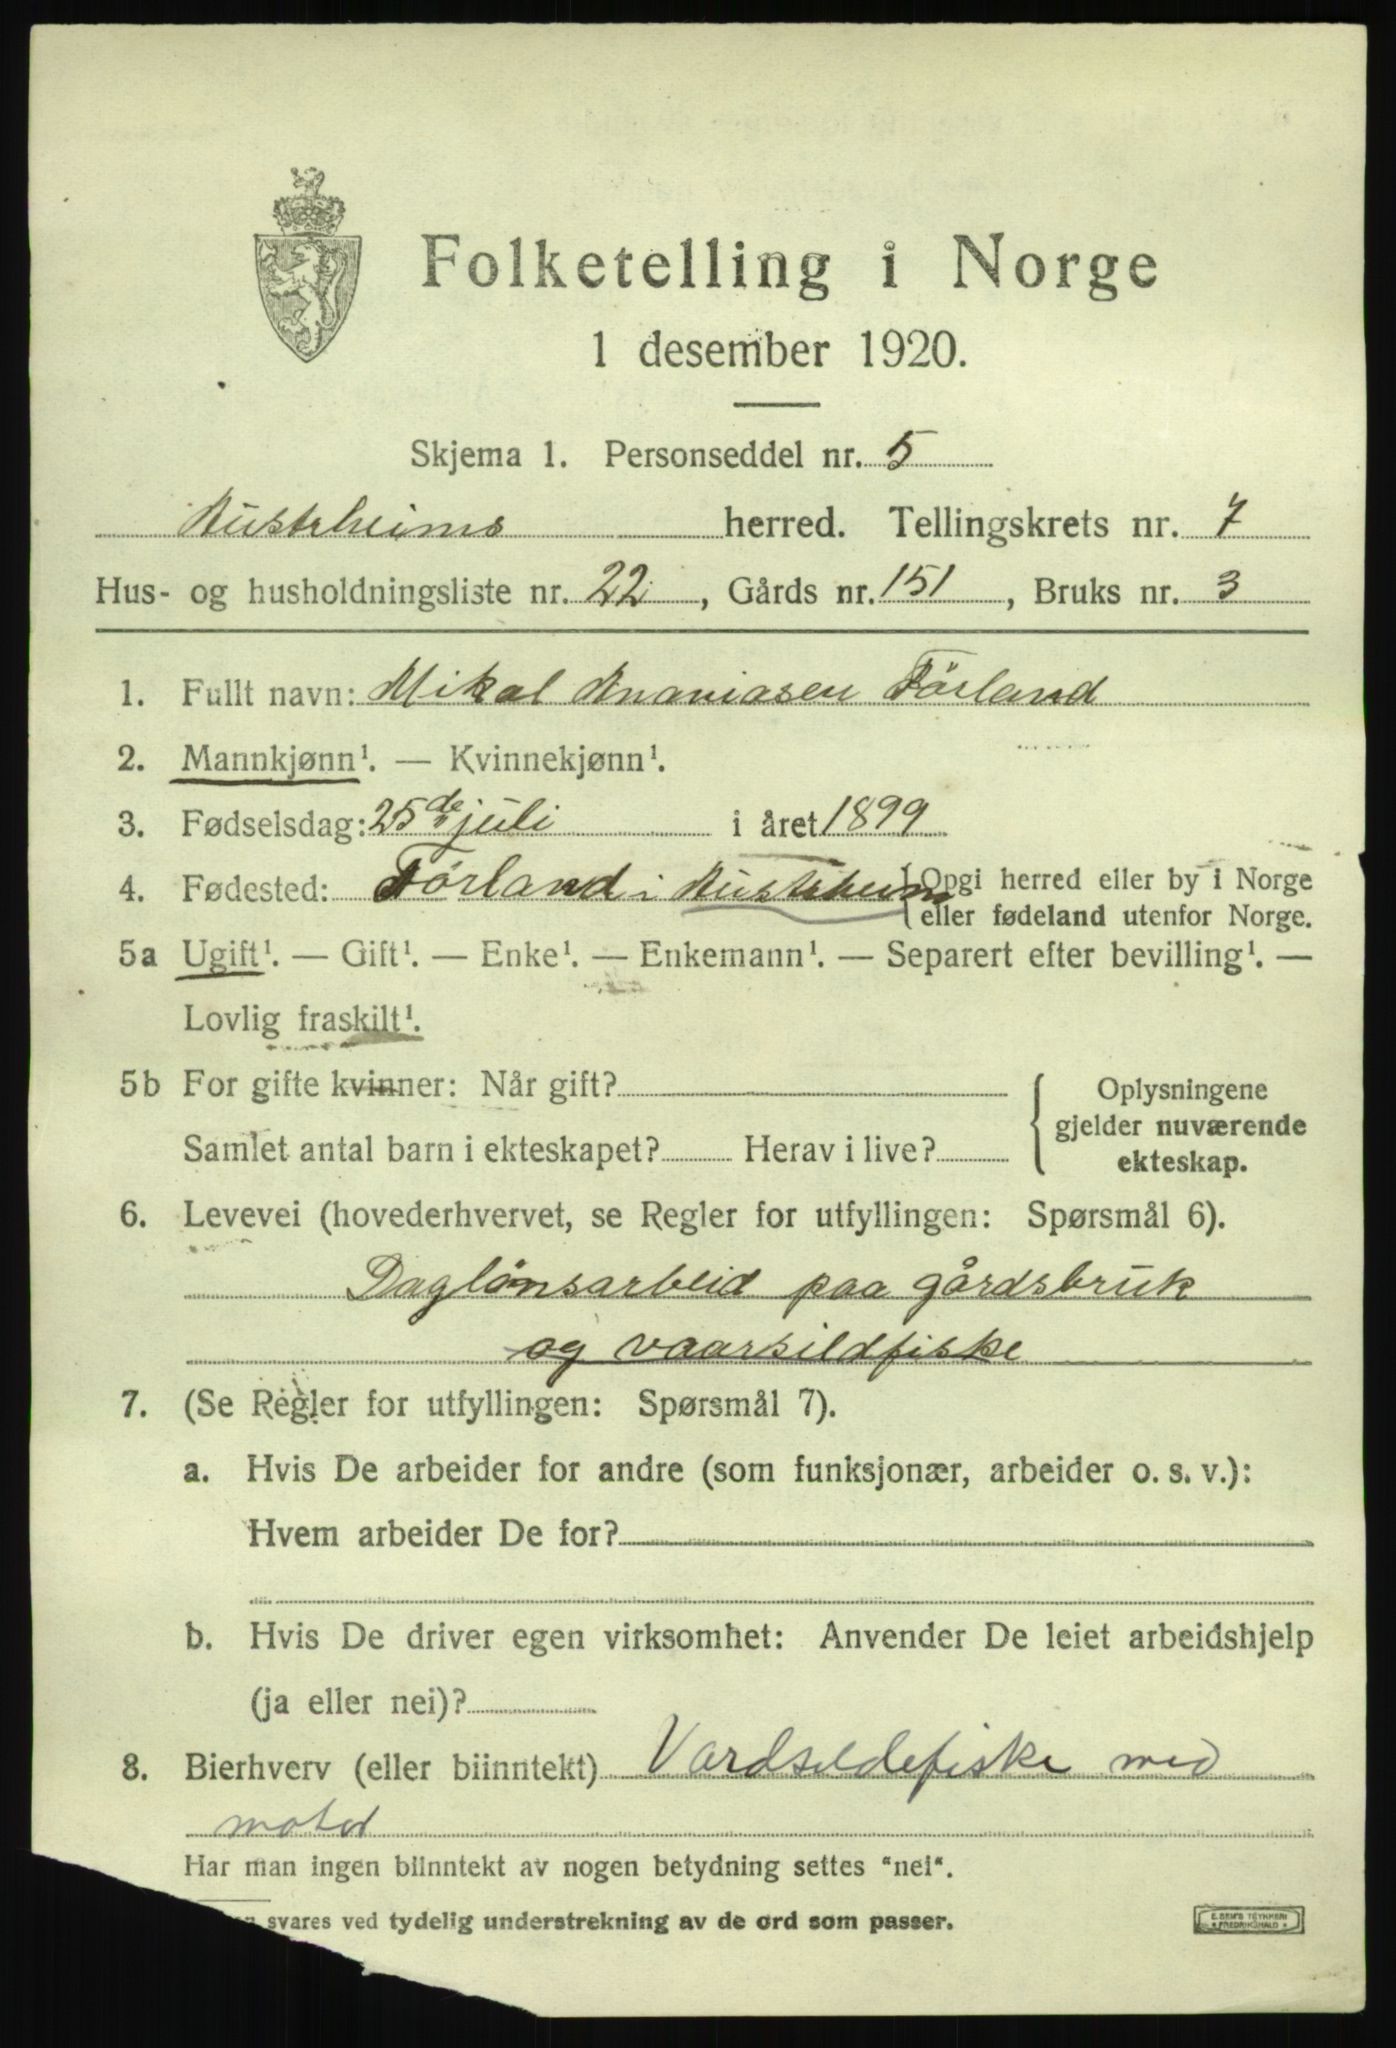 Folketelling i Norge
1 desember 1920.
Skjema 1. Personseddel nr. 5
Austrheims herred. Tellingskrets nr. 7
Hus- og husholdningsliste nr. 22, Gårds nr. 151, Bruks nr. 3
1. Fullt navn: Mikal Ananiasen Förland
2. Mannkjønn¹. — Kvinnekjønn¹.
3. Fødselsdag: 25de juli i året 1899
4. Fødested: Förland i Austrheim {Opgi herred eller by i Norge
eller fødeland utenfor Norge.
5a Ugift¹. — Gift¹. — Enke¹. — Enkemann¹. — Separert efter bevilling¹. —
Lovlig fraskilt¹.
5b For gifte kvinner: Når gift?
Samlet antal barn i ekteskapet? Herav i live?
{Oplysningene
gjelder nuværende
ekteskap.
6. Levevei (hovederhvervet, se Regler for utfyllingen: Spørsmål 6).
Daglönsarbeid paa gårdsbruk
og vaarsildfiske
7. (Se Regler for utfyllingen: Spørsmål 7).
a. Hvis De arbeider for andre (som funksjonær, arbeider o. s. v.):
Hvem arbeider De for?
b. Hvis De driver egen virksomhet: Anvender De leiet arbeidshjelp
(ja eller nei)?
8. Bierhverv (eller biinntekt) Vardsildefiske med
motor
Har man ingen biinntekt av nogen betydning settes "nei".
svares ved tydelig understrekning av de ord som passer.
E. SEM'S TRYKKERI
FREDRIKSHALD